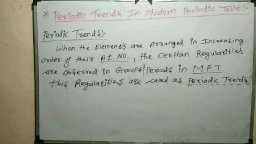 * Periodic Trends In Modern Periodic Table:-
Periodic Trends:-
When the Elements are Arranged in Increasing
order of their At. No, the Certain Regularities
are observed in Groups/Periods in M.P.T
this Regularities are used as Periodic Trends